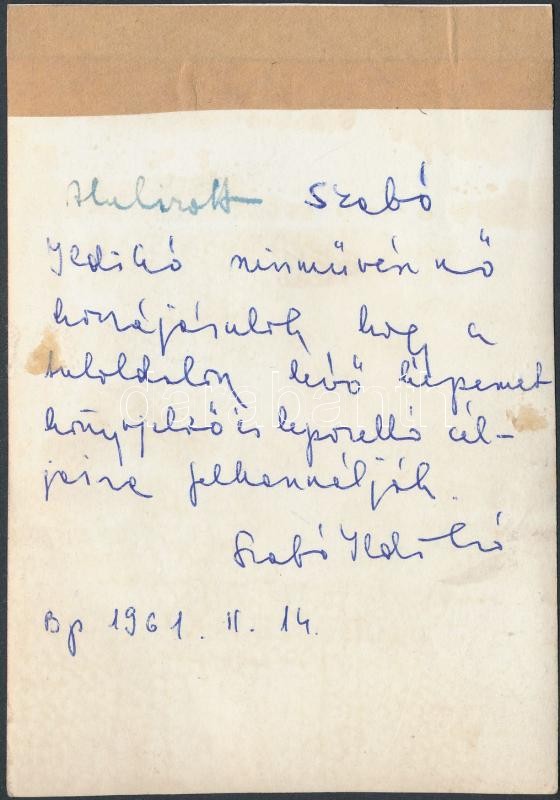 Alulírott Szabó
Ildikó színművésznő
hozzájárulok hogy a
túloldalon lévő képemet
könyvjelző és leporelló cél-
jaira felhasználják.
Szabó Ildikó
Bp 1961. II. 14.